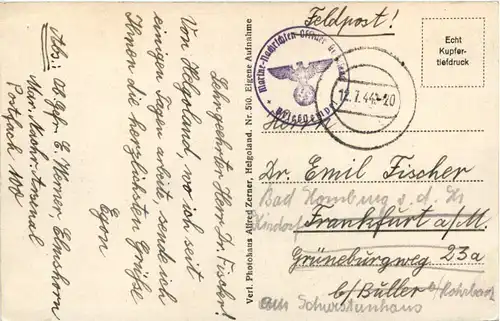 Feldpost!
Echt
Kupfer-
tiefdruck
Marine-Nachrichten-Offizier
Briefstempel
12.7.44.-20
Herrn
Dr. Emil Fischer
Bad Homburg v. d. H.
Frankfurt a/M.
Grüneburgweg 23a
b/ Büller
Sehr geehrter Herr Dr. Fischer!
Von Helgoland, wo ich seit
einigen Tagen arbeite, sende ich
Ihnen die herzlichsten Grüße
Egon
Abs: Ob. Gefr. E. Werner, Elmshorn
Mar. Nachr. Arsenal
Postfach 100
Verl. Photohaus Alfred Zerner, Helgoland. Nr. 510. Eigene Aufnahme